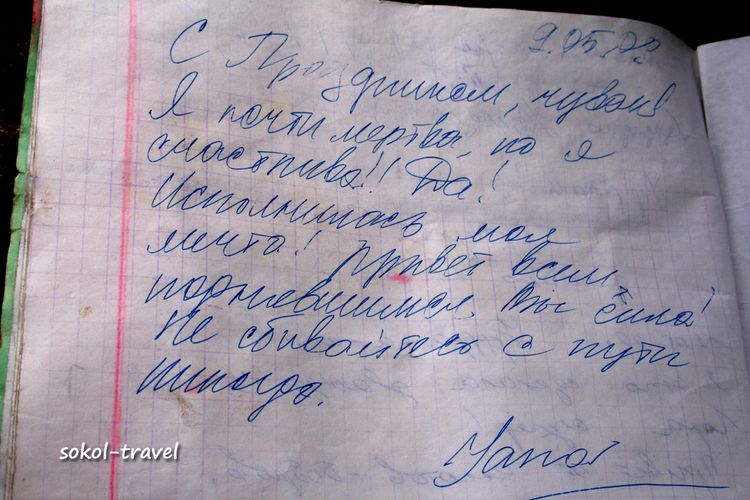 9.05.08
С Праздником, чуваки
Я почти мертва, но я
счастлива!! Да!
Исполнилась моя
мечта! Привет всем
поднявшимся. Вы сила!
Не сбивайтесь с пути
никогда.
sokol-travel